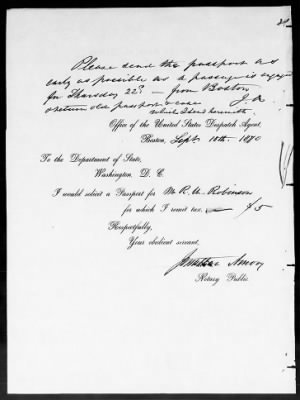 Please send this passport as
early as possible as a passage is engaged
for Thursday 22d — from Boston
return old passport & case J. A.
which I send herewith
Office of the United States Despatch Agent,
Boston, Sept. 10th. 1870
To the Department of State,
Washington, D. C.
I would solicit a Passport for Mr R. W. Robinson
for which I remit tax. $5
Respectfully,
Your obedient servant,
Jonathan Amory
Notary Public.